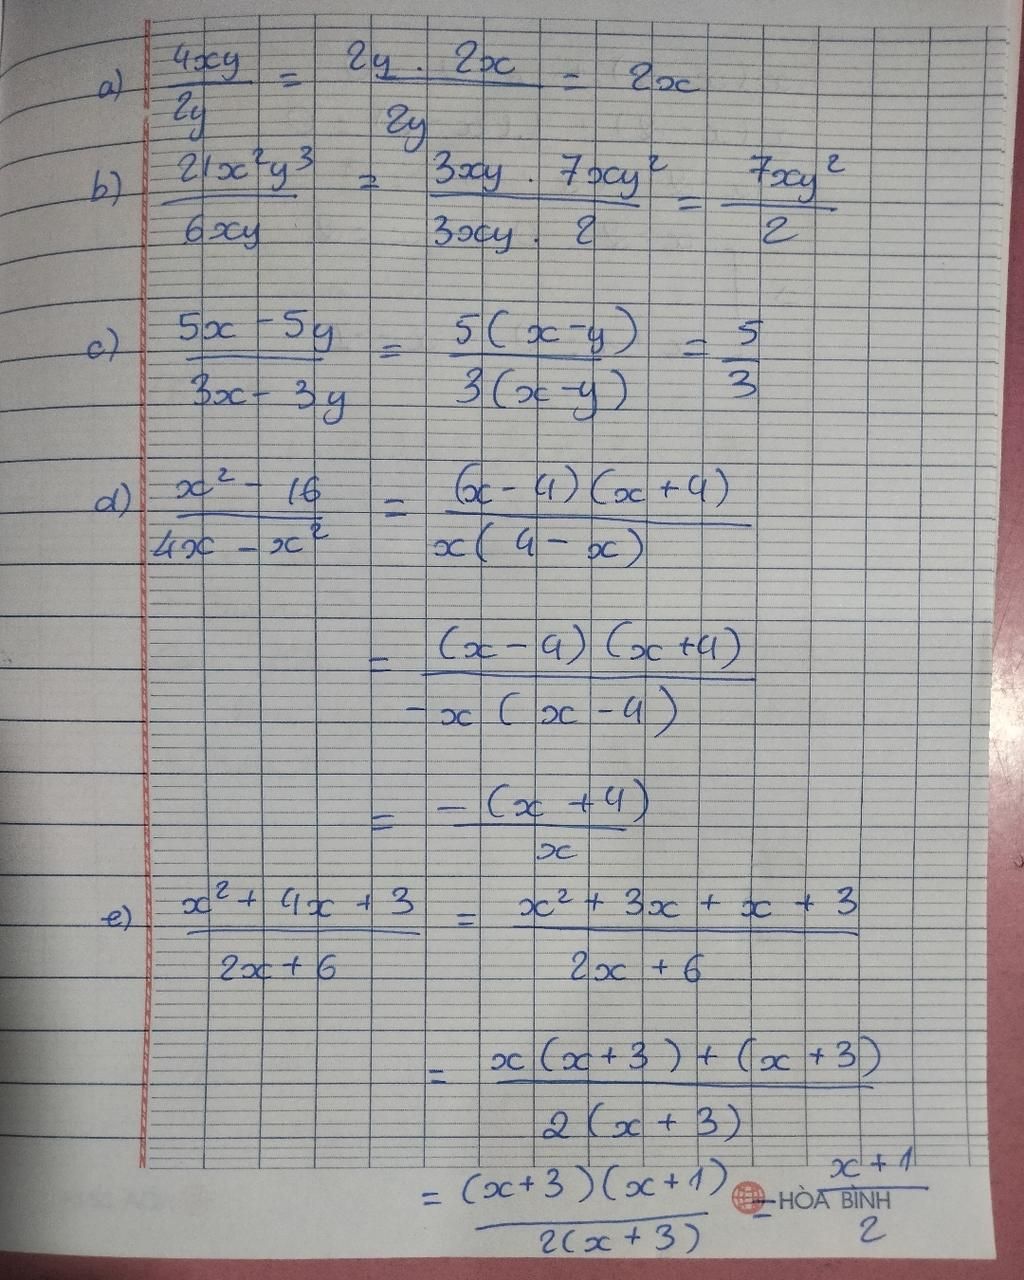 a) 4xy/2y = 2y . 2x/2y = 2x
b) 21x²y³/6xy = 3xy . 7xy²/3xy . 2 = 7xy²/2
c) 5x - 5y/3x - 3y = 5(x-y)/3(x-y) = 5/3
d) x² - 16/4x - x² = (x-4)(x+4)/x(4-x)
= (x-4)(x+4)/-x(x-4)
= -(x+4)/x
e) x² + 4x + 3/2x + 6 = x² + 3x + x + 3/2x + 6
= x(x+3) + (x+3)/2(x+3)
= (x+3)(x+1)/2(x+3) = x+1/2
HÒA BÌNH